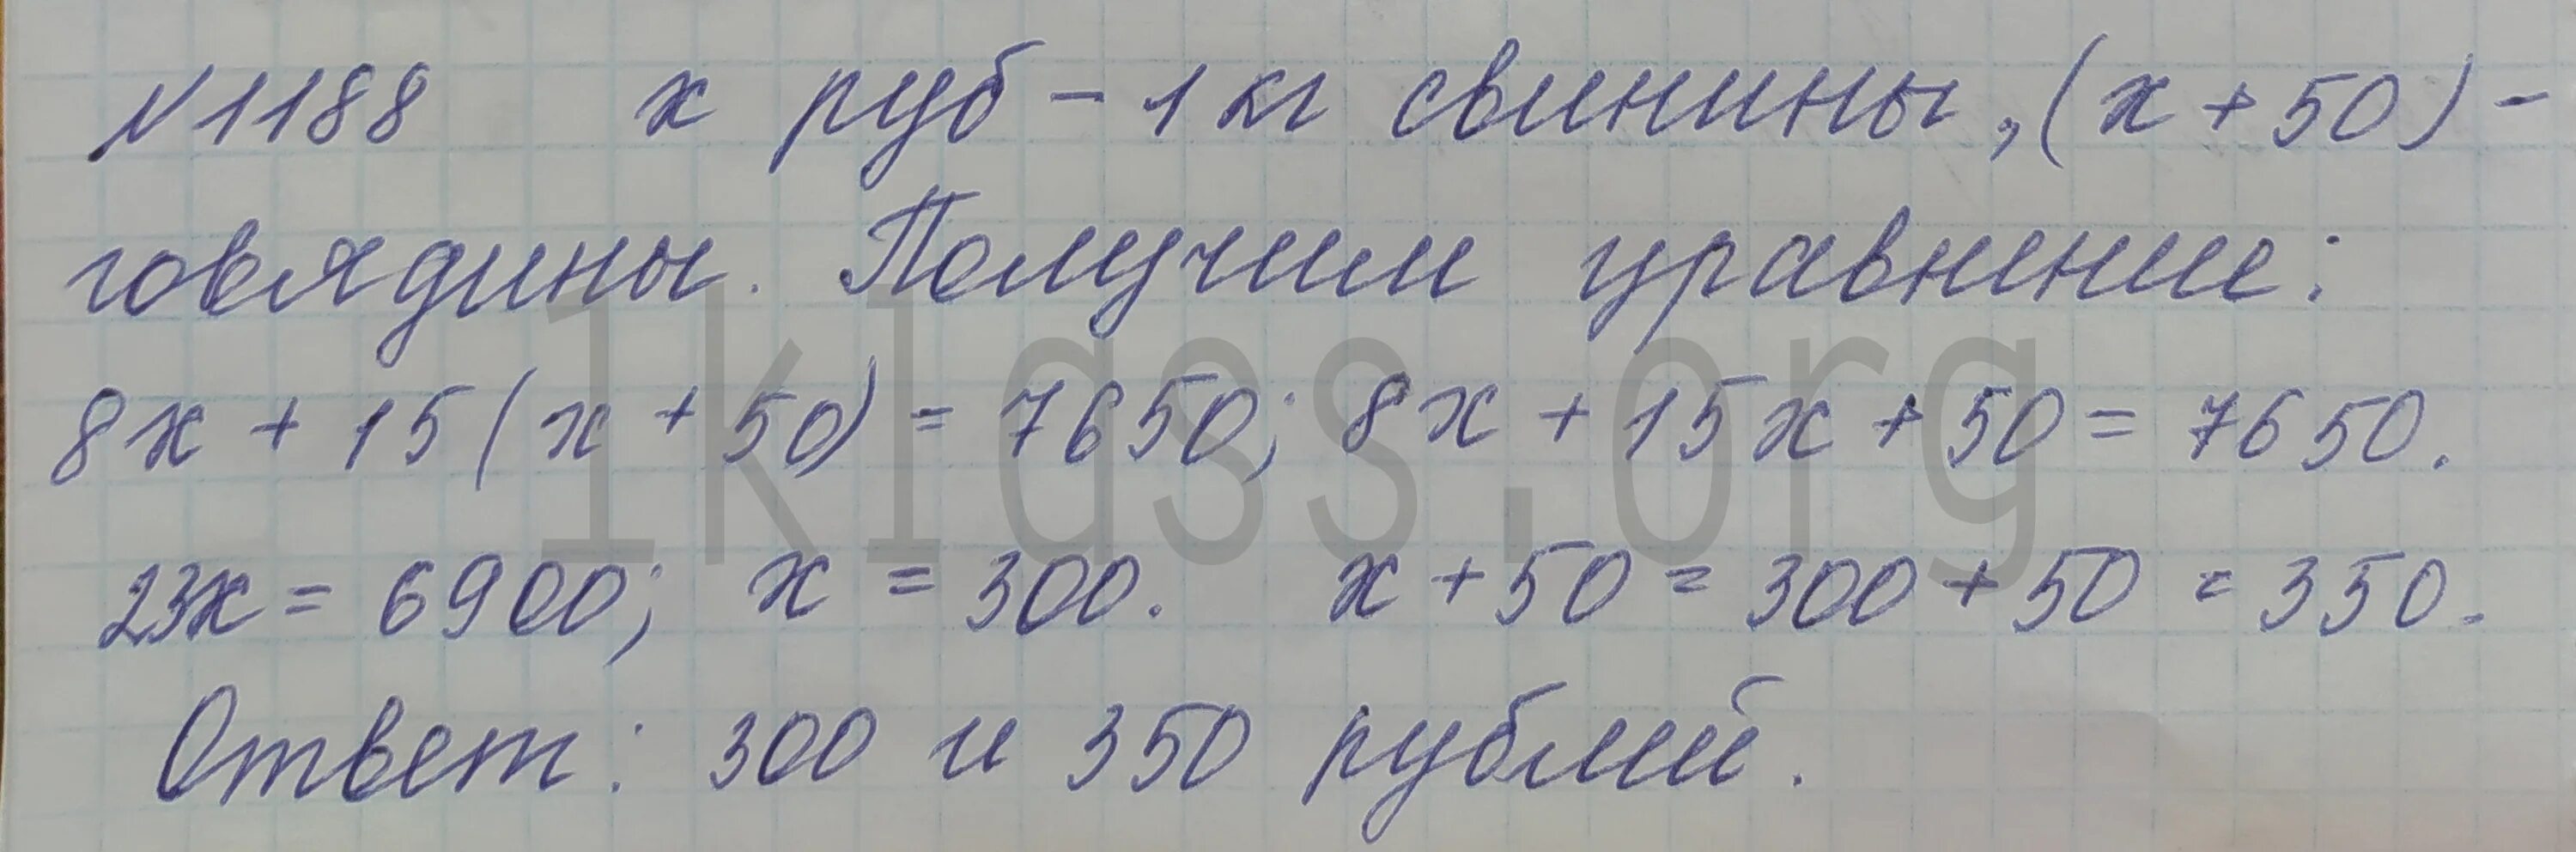 №1188 х руб – 1 кг свинины, (х + 50) –
говядины. Получим уравнение:
8х + 15(х + 50) = 7650; 8х + 15х + 50 = 7650.
23х = 6900; х = 300. х + 50 = 300 + 50 = 350.
Ответ: 300 и 350 рублей.
1klass.org